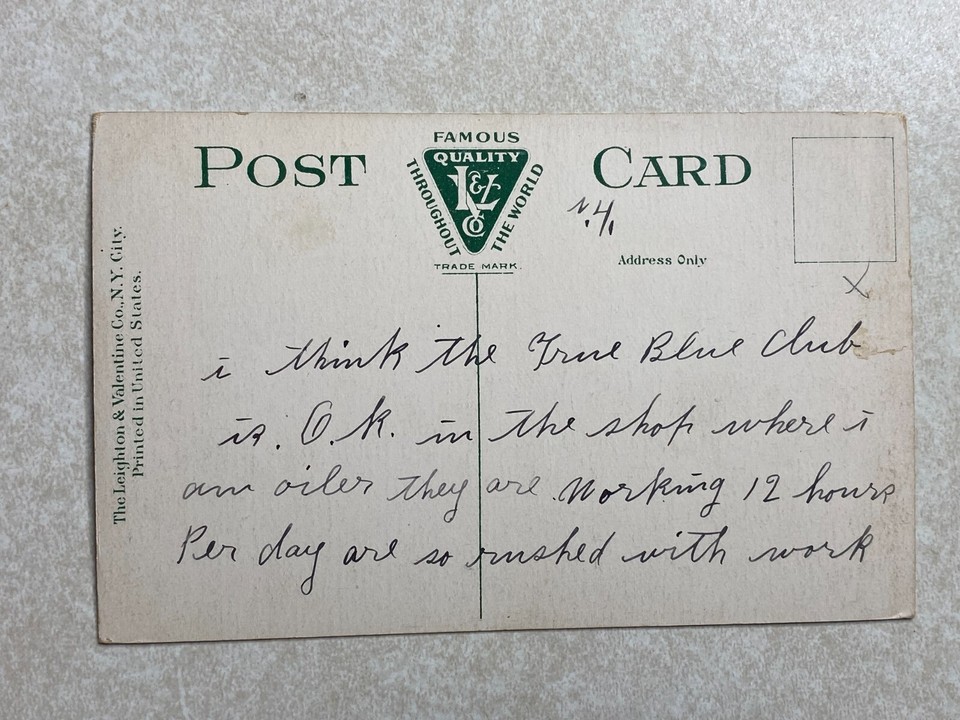 POST CARD
FAMOUS
QUALITY
THROUGHOUT
THE WORLD
L&V
Co
TRADE MARK.
Address Only
The Leighton & Valentine Co., N.Y. City.
Printed in United States.
X
i think the True Blue Club
is. O.k. in the shop where i
am oiler they are working 12 hours
Per day are so rushed with work